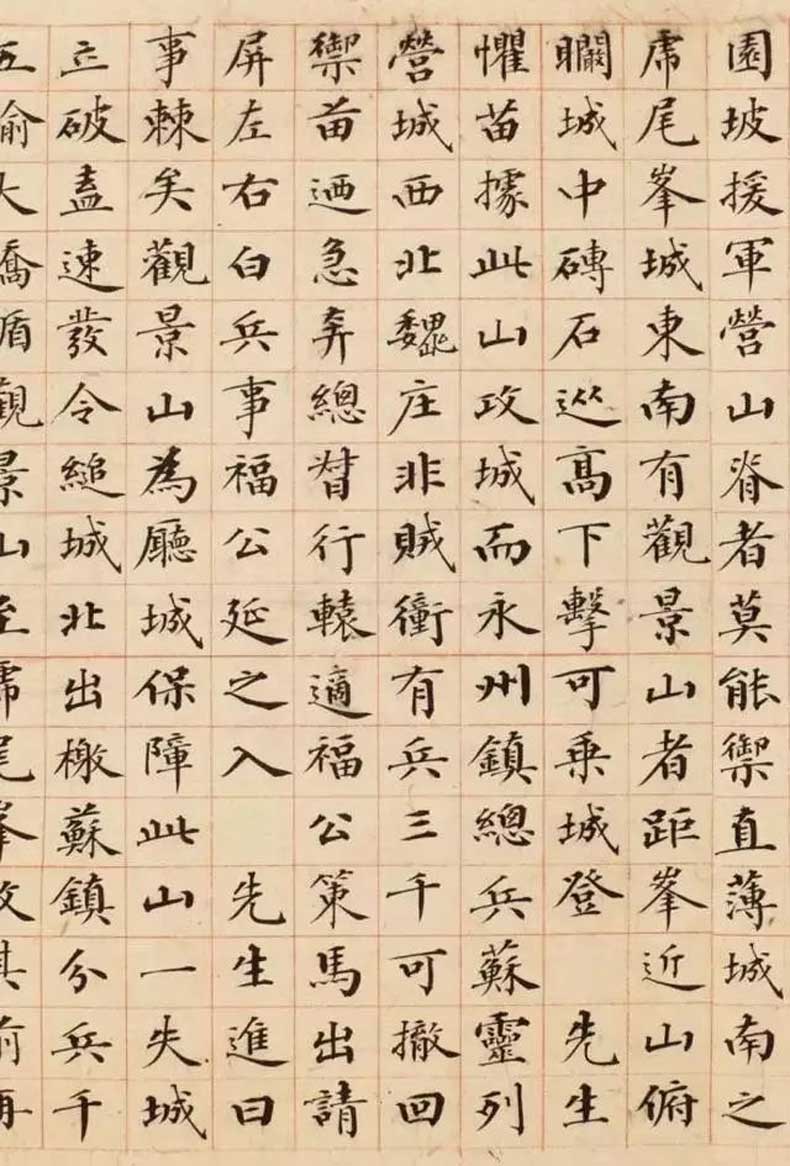 園坡援軍營山脊者莫能禦直薄城南之
虎尾峯城東南有觀景山者距峯近山俯
矙城中磚石從高下擊可乗城登 先生
懼苗據此山攻城而永州鎮總兵蘇靈列
營城西北魏庄非賊衝有兵三千可撤回
禦苗迺急奔總督行轅適福公策馬出請
屏左右白兵事福公延之入 先生進曰
事棘矣觀景山為廳城保障此山一失城
立破盍速發令縋城北出檄蘇鎮分兵千
五大觀景山至虎尾峯攻其前再